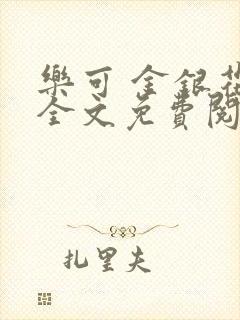 樂可 金銀花
全文免費閱
扎里夫